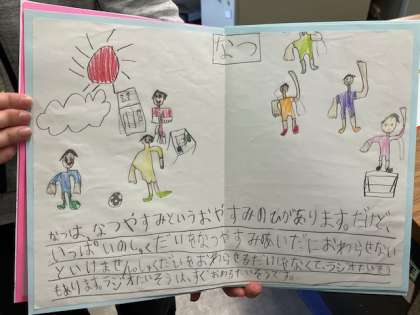 なつ
なつは、なつやすみというおやすみのひがあります。だけど、
いっぱいのしゅくだいをなつやすみのあいだにおわらせない
といけません。しゅくだいをおわらせるだけじゃなくて、ラジオたいそう
もあります。ラジオたいそうは、すぐおわるたいそうです。